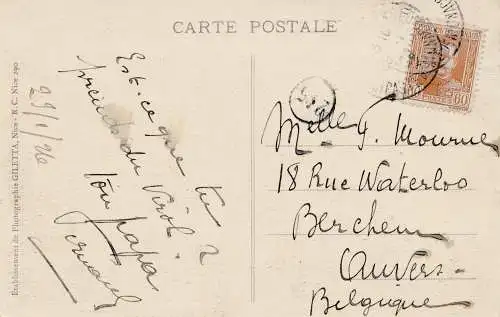 CARTE POSTALE
Etablissement de Photographie GILETTA, Nice - R. C. Nice 290
29/1/26
Est-ce que tu
prends du Virol?
Ton papa
Fernand
Melle F. Mourue
18 Rue Waterloo
Berchem
Anvers
Belgique
60